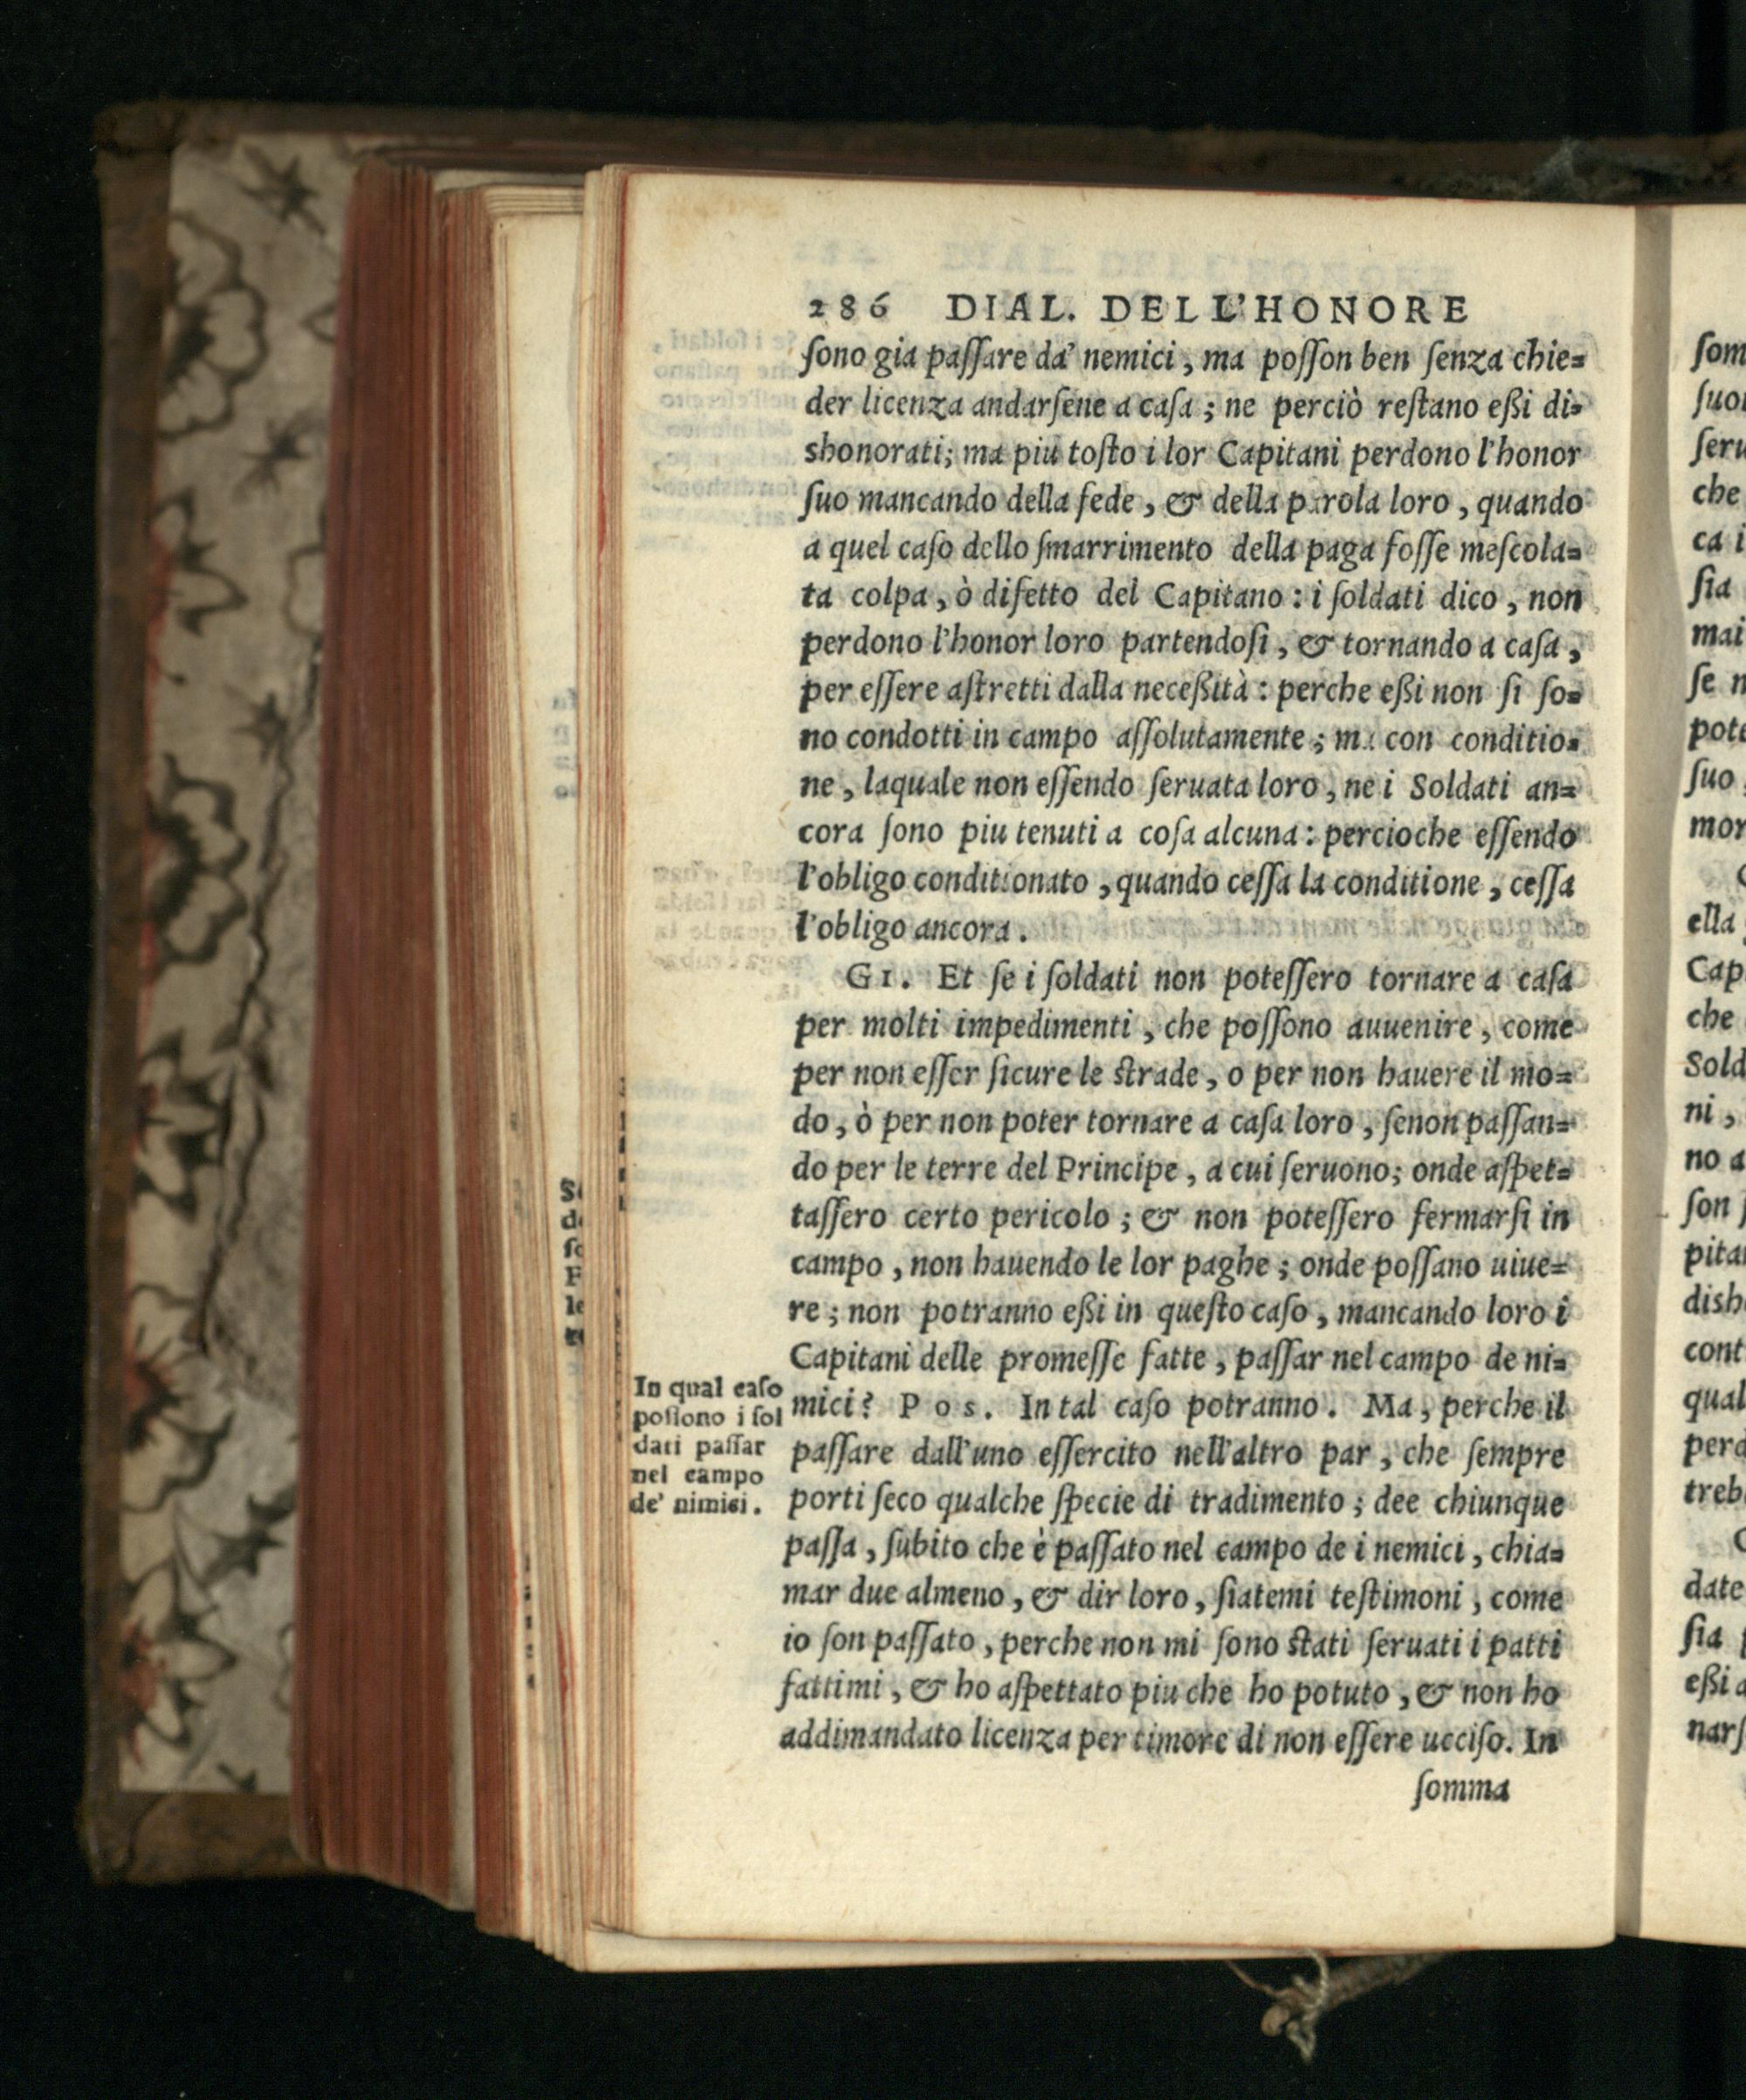 286 DIAL. DELL'HONORE
ſono gia paſſare da' nemici, ma poſſon ben ſenza chie=
der licenza andarſene a caſa; ne perciò reſtano eßi di=
shonorati; ma piu toſto i lor Capitani perdono l'honor
ſuo mancando della fede, & della parola loro, quando
a quel caſo dello ſmarrimento della paga foſſe meſcola=
ta colpa, ò difetto del Capitano: i ſoldati dico, non
perdono l'honor loro partendoſi, & tornando a caſa,
per eſſere aſtretti dalla neceßità: perche eßi non ſi ſo=
no condotti in campo aſſolutamente; ma con conditio=
ne, laquale non eſſendo ſeruata loro, ne i Soldati an=
cora ſono piu tenuti a coſa alcuna: percioche eſſendo
l'obligo conditionato, quando ceſſa la conditione, ceſſa
l'obligo ancora.
GI. Et ſe i ſoldati non poteſſero tornare a caſa
per molti impedimenti, che poſſono auuenire, come
per non eſſer ſicure le ſtrade, o per non hauere il mo=
do, ò per non poter tornare a caſa loro, ſenon paſſan=
do per le terre del Principe, a cui ſeruono; onde aſpet=
taſſero certo pericolo; & non poteſſero fermarſi in
campo, non hauendo le lor paghe; onde poſſano uiue=
re; non potranno eßi in queſto caſo, mancando loro i
Capitani delle promeſſe fatte, paſſar nel campo de ni=
mici? Pos. In tal caſo potranno. Ma, perche il
paſſare dall'uno eſſercito nell'altro par, che ſempre
porti ſeco qualche ſpecie di tradimento; dee chiunque
paſſa, ſubito che è paſſato nel campo de i nemici, chia=
mar due almeno, & dir loro, ſiatemi teſtimoni, come
io ſon paſſato, perche non mi ſono ſtati ſeruati i patti
fattimi, & ho aſpettato piu che ho potuto, & non ho
addimandato licenza per timore di non eſſere ucciſo. In
ſomma
In qual caſo
poſſono i ſol
dati paſſar
nel campo
de' nimici.
ſeru
che
ca i
ſia
mai
ſe n
ſuo
ella
Cap
che
Sold
ni,
no a
ſon
dish
cont
qual
perd
treb
date
ſia
eßi a